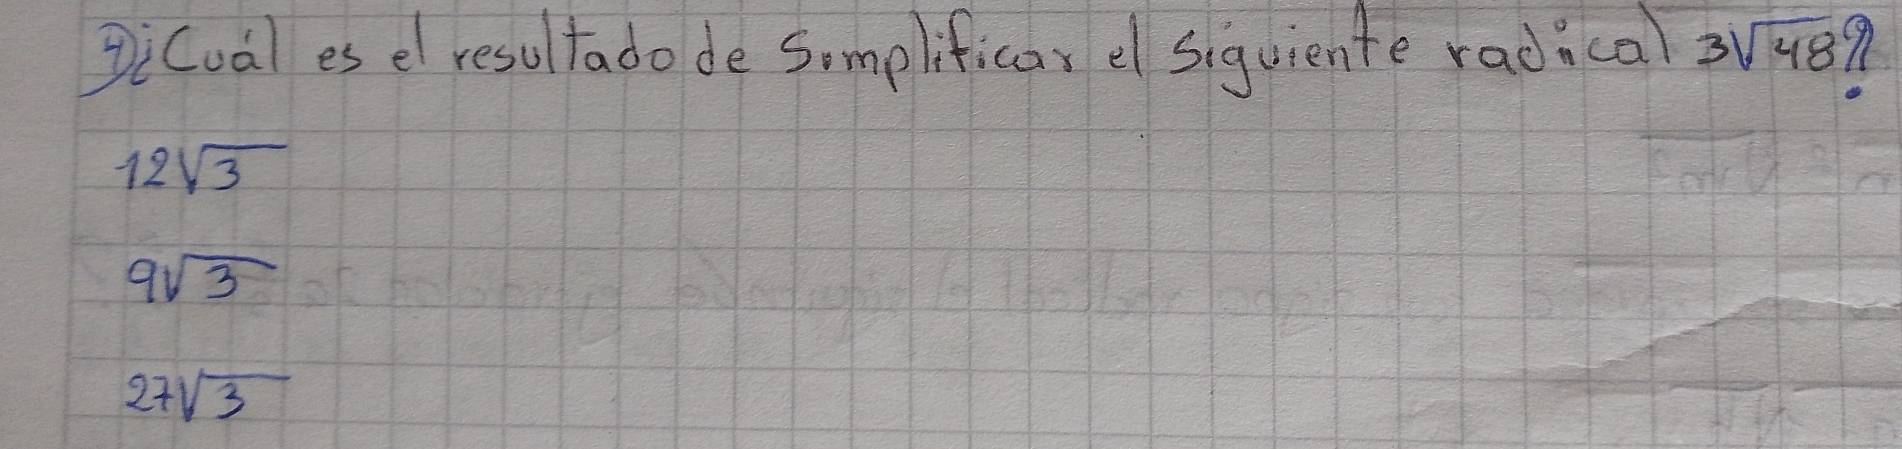 3) ¿Cuál es el resultado de Simplificar el siguiente radical 3√48?
12√3
9√3
27√3